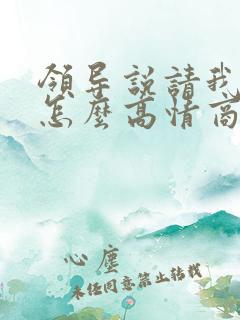 領导説請我
怎麽高情商
心塵
未经同意禁止转载